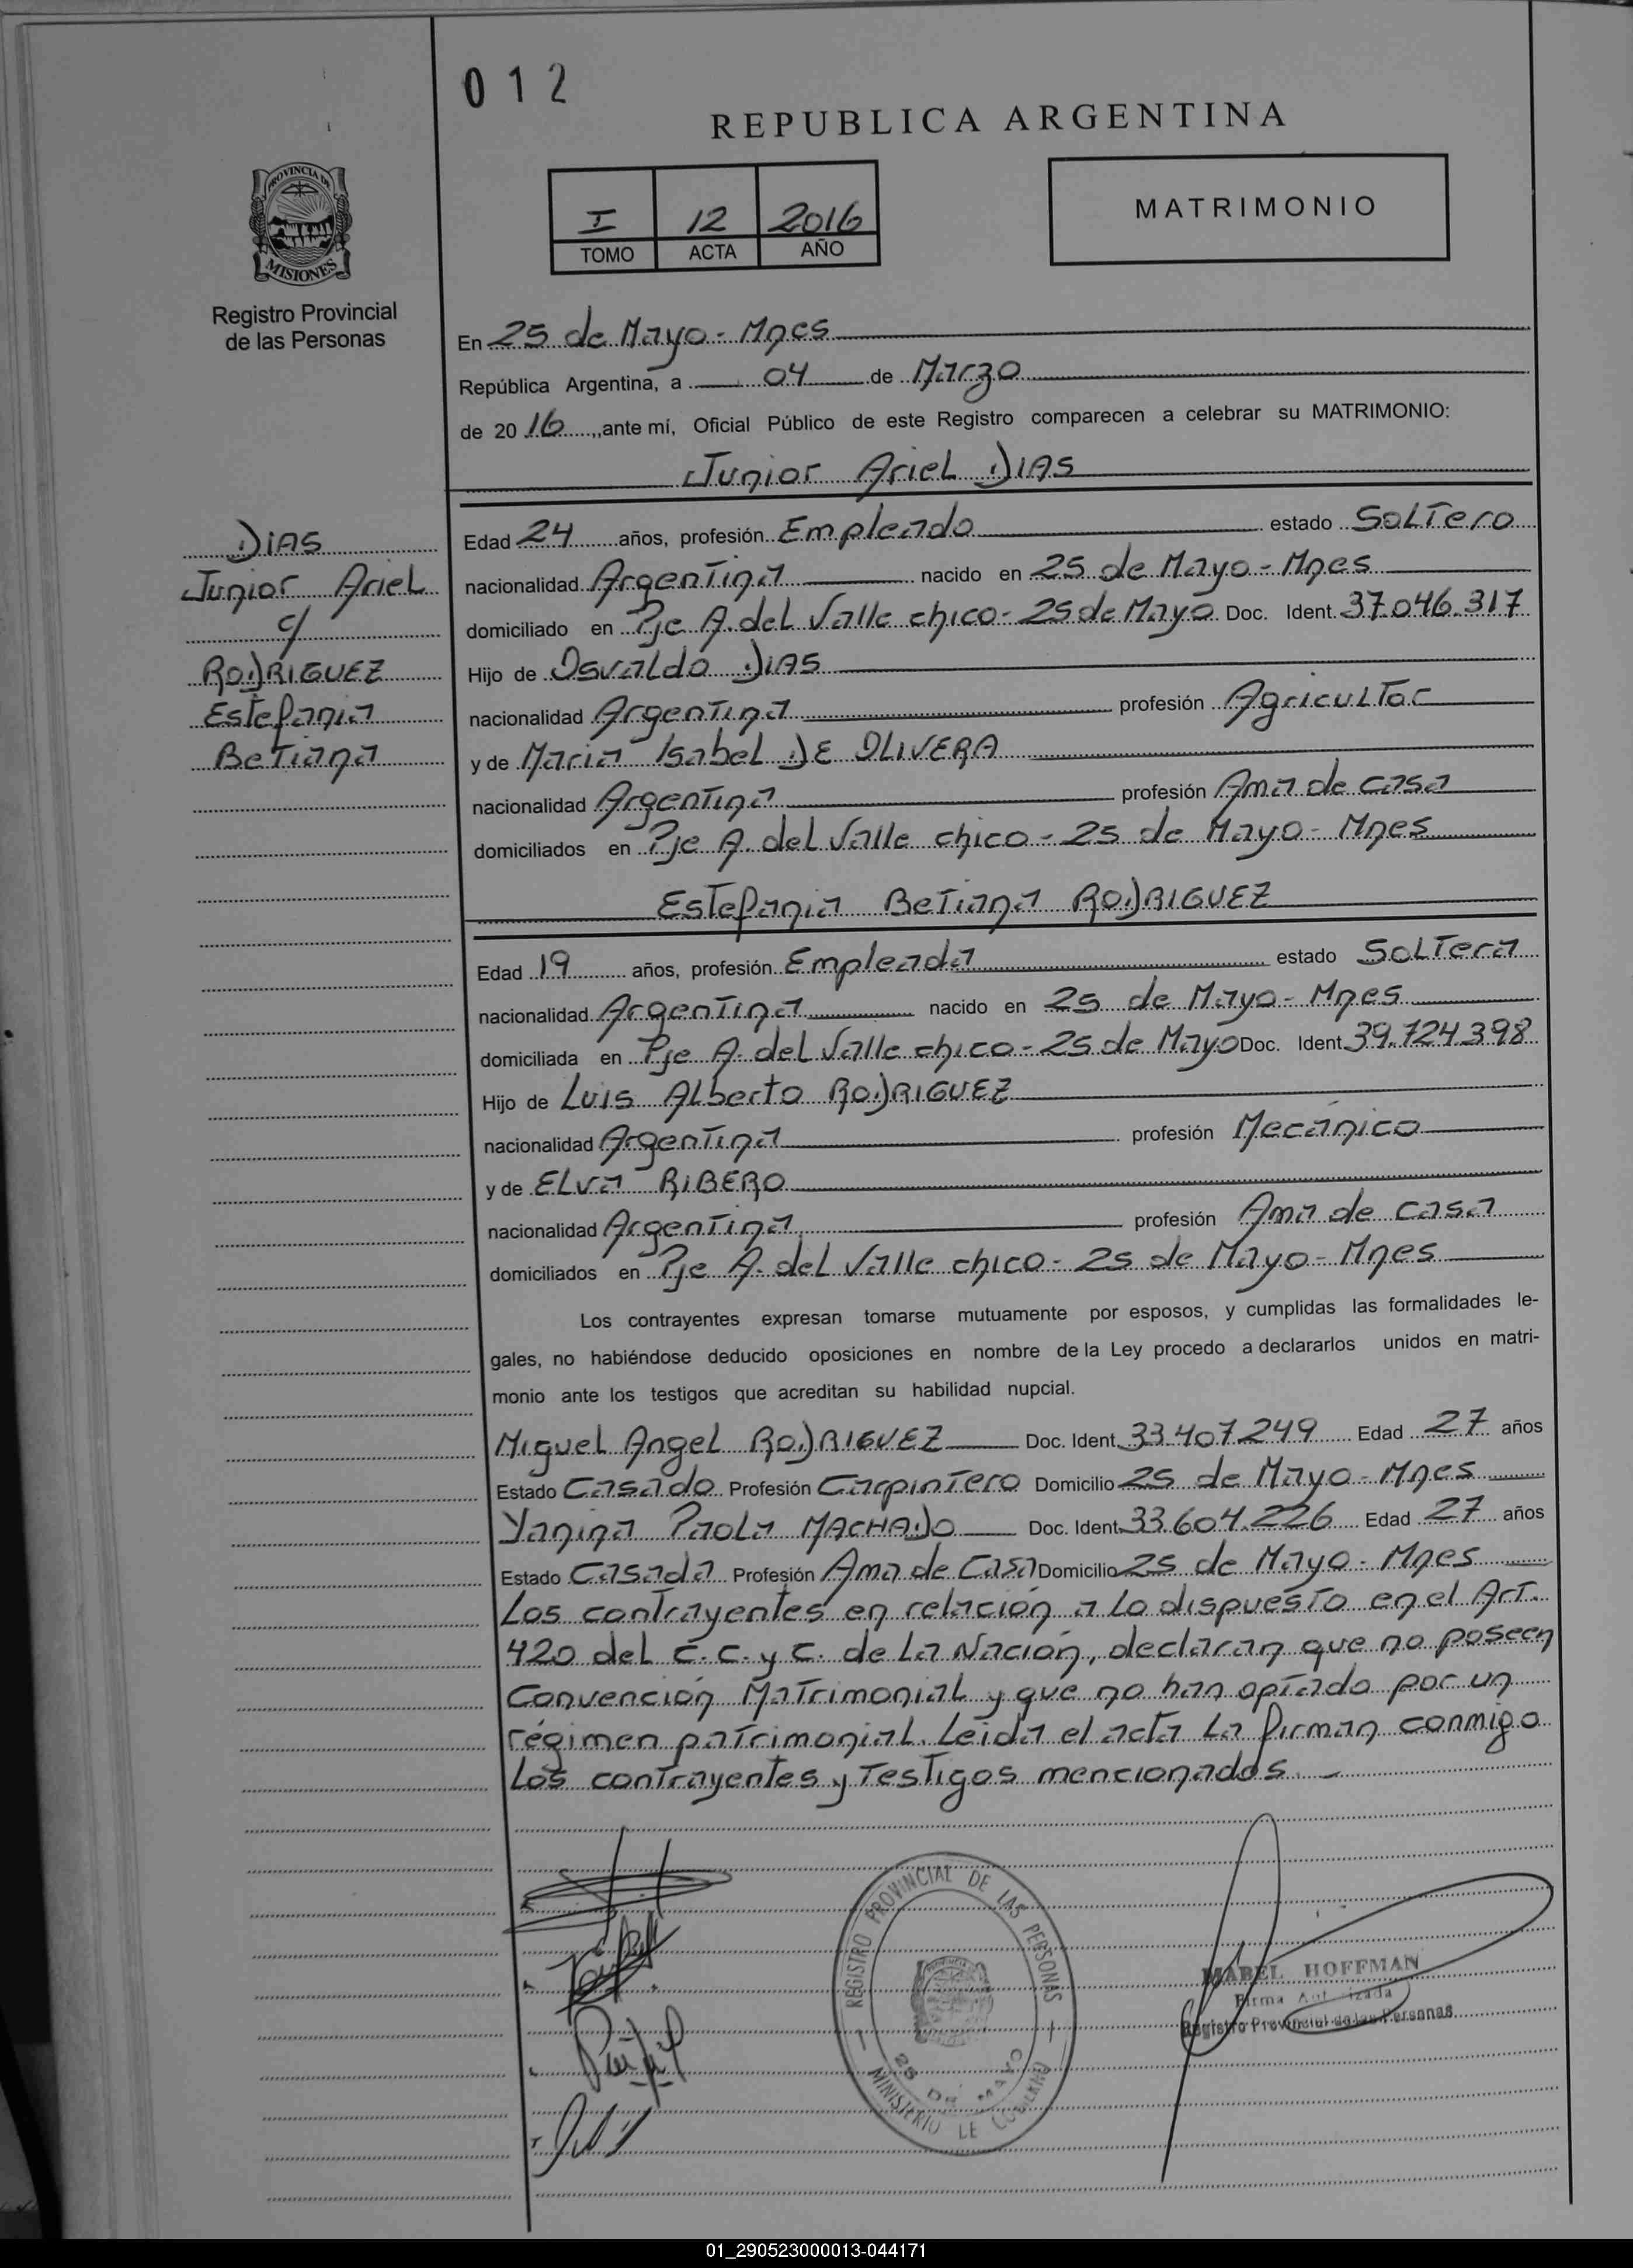 012
REPUBLICA ARGENTINA
PROVINCIA DE
MISIONES
Registro Provincial
de las Personas
I 12 2016
TOMO ACTA AÑO
MATRIMONIO
En 25 de Mayo - Mnes
República Argentina, a 04 de Marzo
de 20 16, ante mí, Oficial Público de este Registro comparecen a celebrar su MATRIMONIO:
Junior Ariel DIAS
DIAS
Junior Ariel
c/
RODRIGUEZ
Estefania
Betiana
Edad 24 años, profesión Empleado estado Soltero
nacionalidad Argentina nacido en 25 de Mayo - Mnes
domiciliado en Pje A. del Valle chico - 25 de Mayo Doc. Ident. 37.046.317
Hijo de Osvaldo DIAS
nacionalidad Argentina profesión Agricultor
y de Maria Isabel DE OLIVERA
nacionalidad Argentina profesión Ama de casa
domiciliados en Pje A. del Valle chico - 25 de Mayo - Mnes
Estefania Betiana RODRIGUEZ
Edad 19 años, profesión Empleada estado Soltera
nacionalidad Argentina nacido en 25 de Mayo - Mnes
domiciliada en Pje A. del Valle chico - 25 de Mayo Doc. Ident. 39.724.398
Hijo de Luis Alberto RODRIGUEZ
nacionalidad Argentina profesión Mecánico
y de Elva RIBERO
nacionalidad Argentina profesión Ama de casa
domiciliados en Pje A. del Valle chico - 25 de Mayo - Mnes
Los contrayentes expresan tomarse mutuamente por esposos, y cumplidas las formalidades le-
gales, no habiéndose deducido oposiciones en nombre de la Ley procedo a declararlos unidos en matri-
monio ante los testigos que acreditan su habilidad nupcial.
Miguel Angel RODRIGUEZ Doc. Ident. 33.407.249 Edad 27 años
Estado Casado Profesión Carpintero Domicilio 25 de Mayo - Mnes
Yanina Paola MACHADO Doc. Ident. 33.604.226 Edad 27 años
Estado Casada Profesión Ama de Casa Domicilio 25 de Mayo - Mnes
Los contrayentes en relación a lo dispuesto en el Art.
420 del C.C. y C. de la Nación, declaran que no poseen
Convención Matrimonial y que no han optado por un
régimen patrimonial. Leida el acta la firman conmigo
los contrayentes y testigos mencionados.
REGISTRO PROVINCIAL DE LAS PERSONAS
25 DE MAYO
MINISTERIO DE GOBIERNO
MABEL HOFFMAN
Firma Autorizada
Registro Provincial de las Personas
01_290523000013-044171